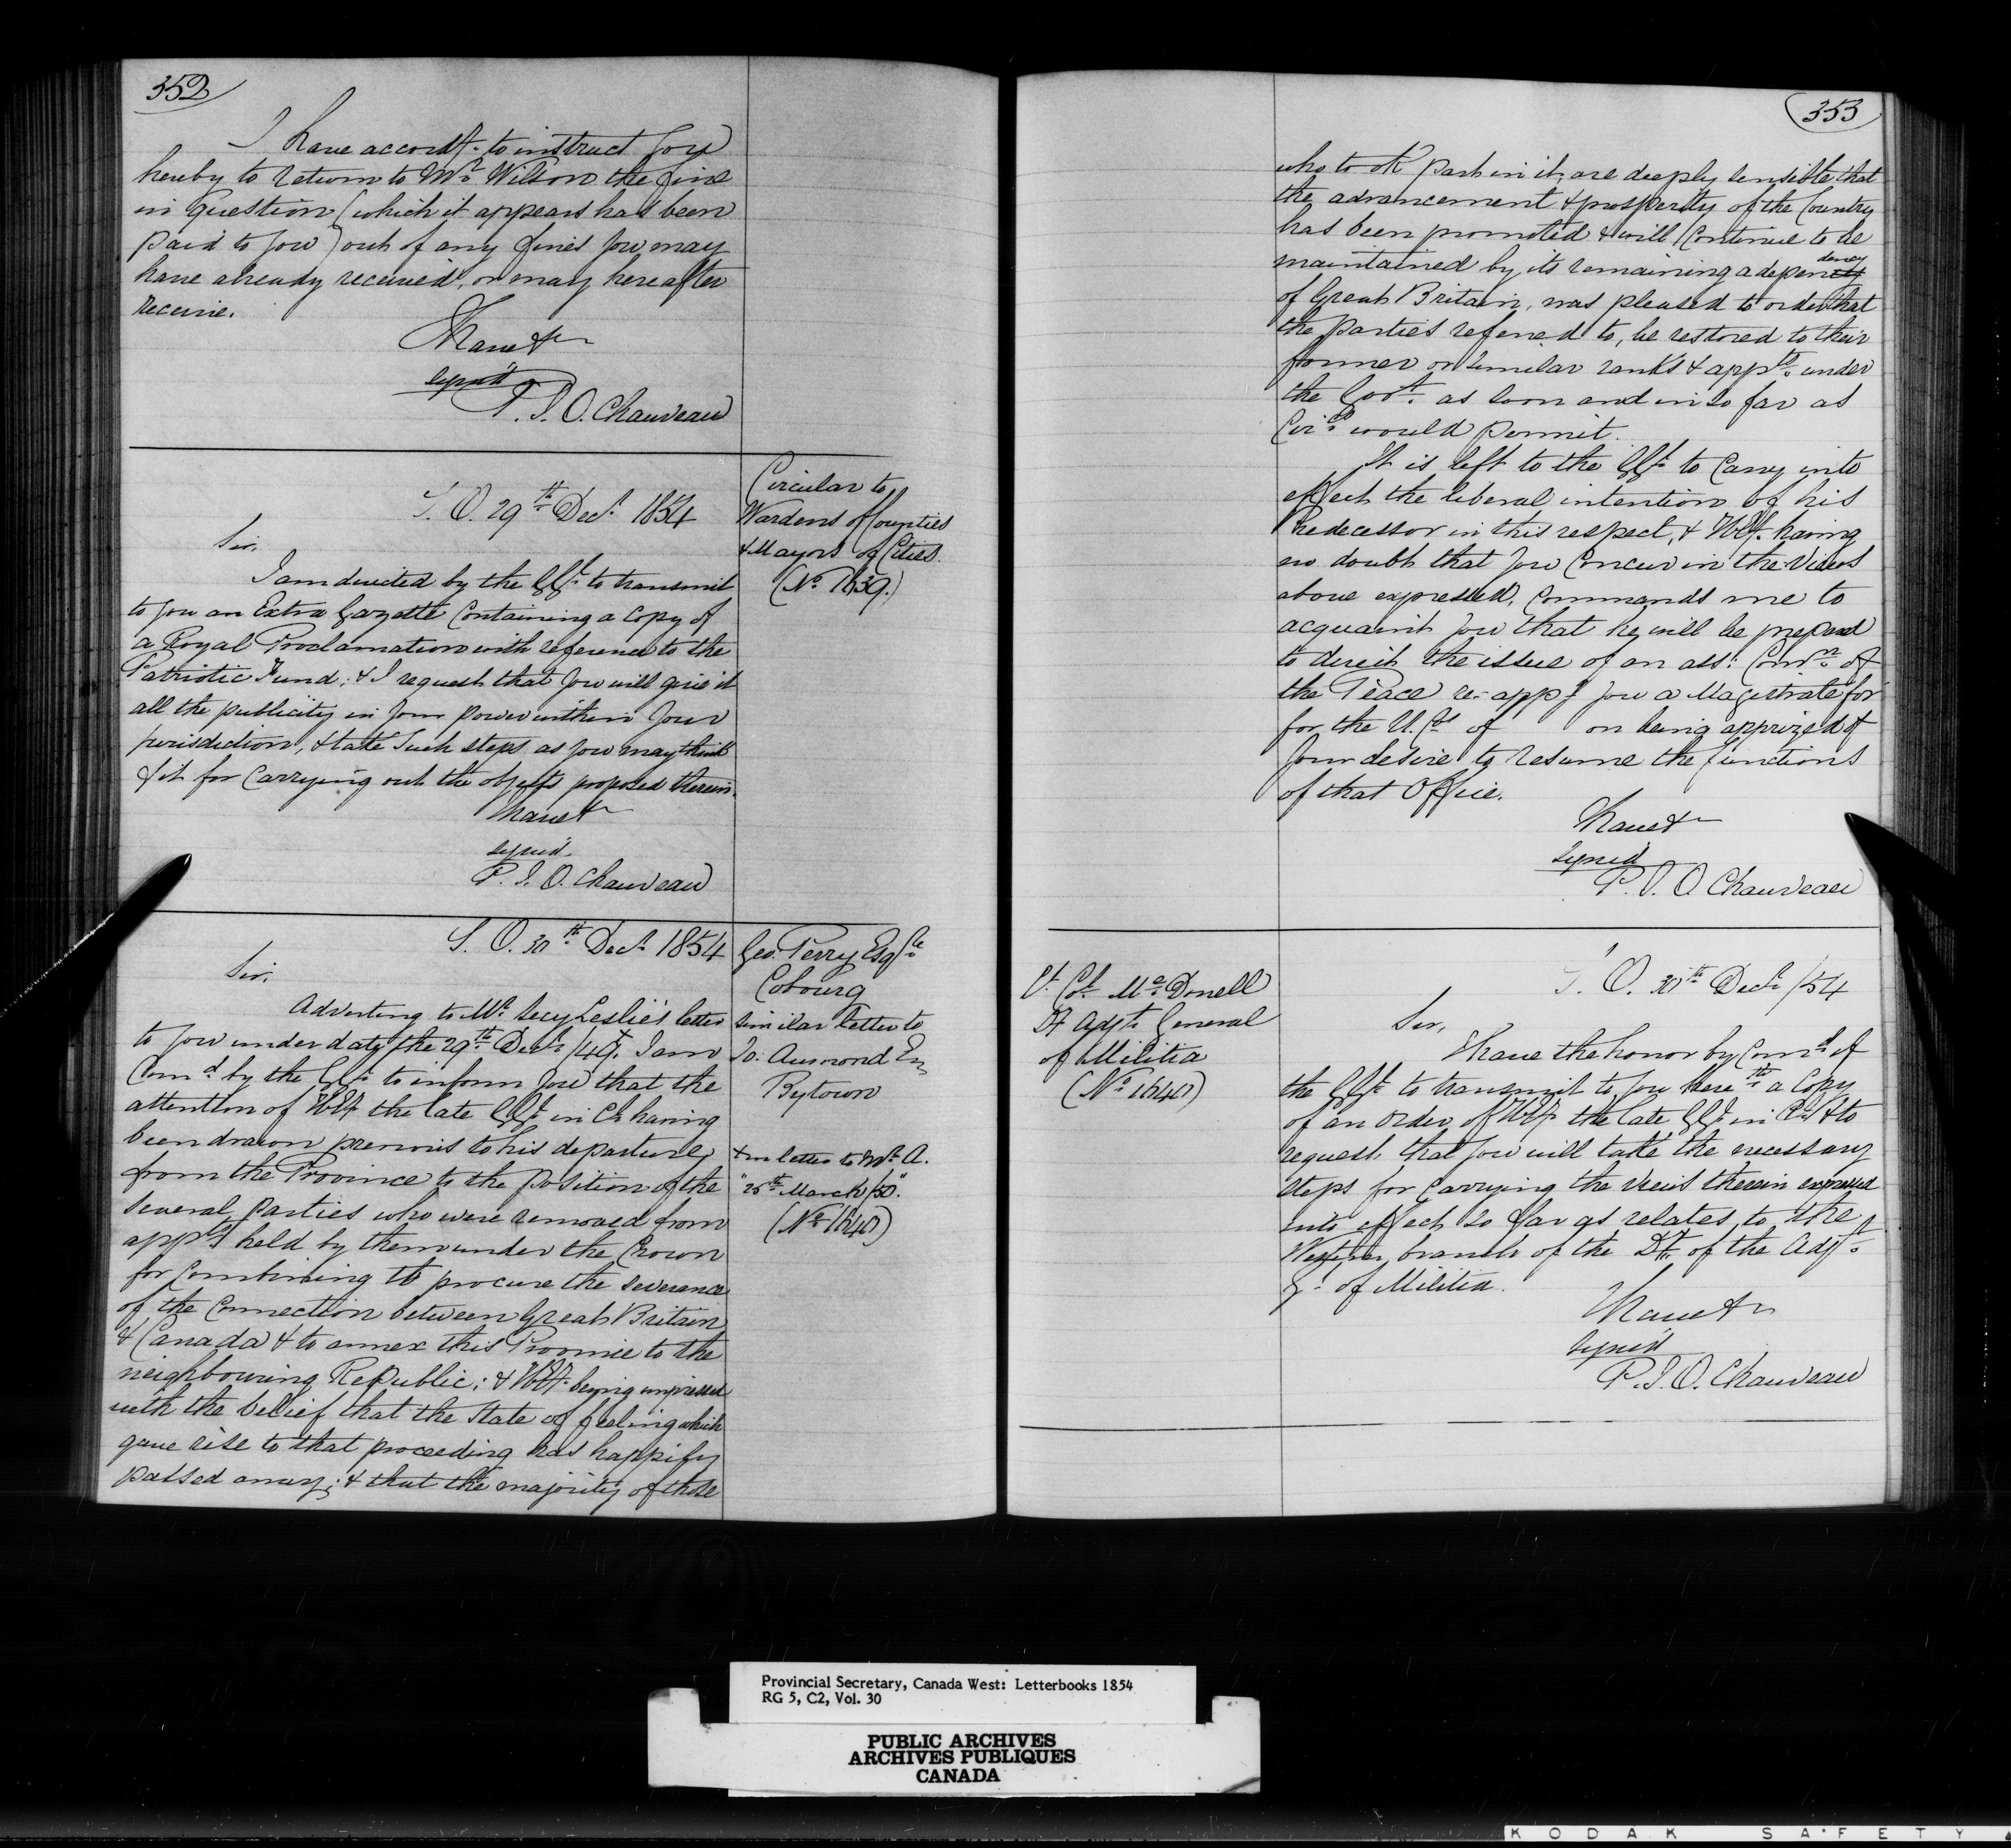 352
I have accordy. to instruct you
hereby to return to Mr. Wilson the fine
in question (which it appears has been
paid to you) out of any fines you may
have already received, or may hereafter
receive.
I have &c
signed
P. J. O. Chauveau
Circular to
Wardens of Counties
& Mayors of Cities.
(No. 1639.)
S. O. 29th Decr. 1854
Sir,
I am directed by the GGl. to transmit
to you an Extra Gazette Containing a Copy of
a Royal Proclamation with reference to the
Patriotic Fund; & I request that you will give it
all the publicity in your power within your
jurisdiction, & take such steps as you may think
fit for Carrying out the objects proposed therein.
I have &c
signed.
P. J. O. Chauveau
Geo. Perry Esqre
Cobourg
similar letter to
Jo: Aumond Esq
Bytown
+ in letter to Mr. A.
"25th March /50".
(No. 1640)
S. O. 30th Decr. 1854
Sir,
Adverting to Mr. Secy Leslie's letter
to you under date the 29th Decr. /49. I am
Comd by the GGl. to inform you that the
attention of H.E. the late GGl. in Cl. having
been drawn previous to his departure
from the Province to the position of the
several parties who were removed from
appts held by them under the Crown
for Combining to procure the severance
of the Connection between Great Britain
& Canada & to annex this Province to the
neighbouring Republic; & H.E. being impressed
with the belief that the state of feeling which
gave rise to that proceeding has happily
passed away; & that the majority of those
353
who took part in it, are deeply sensible that
the advancement & prosperity of the Country
has been promoted & will Continue to be
maintained by its remaining a dependency
of Great Britain, was pleased to order that
the parties referred to, be restored to their
former or similar ranks & appts. under
the Govt. as soon and in so far as
Circs would permit.
It is left to the GGl. to Carry into
effect the liberal intention of his
Predecessor in this respect, & H.E. having
no doubt that you Concur in the Views
above expressed, Commands me to
acquaint you that he will be prepared
to direct the issue of an ass: Comn. of
the Peace re-appg you a Magistrate for
for the U. Cs of on being apprized of
your desire to resume the functions
of that Office.
I have &c
signed
P. J. O. Chauveau
Lt. Col. McDonell
Dy Adjt. General
of Militia
(No. 1640)
S. O. 30th Decr. /54
Sir,
I have the honor by Comd of
the GGl. to transmit to you herewith a Copy
of an Order of H.E. the late GGl. in Cl. & to
request that you will take the necessary
steps for Carrying the views therein expressed
into effect so far as relates to the
Western branch of the Dt. of the Adjt.
Gl. of Militia.
I have &c
signed
P. J. O. Chauveau
Provincial Secretary, Canada West: Letterbooks 1854
RG 5, C2, Vol. 30
PUBLIC ARCHIVES
ARCHIVES PUBLIQUES
CANADA
KODAK SAFETY